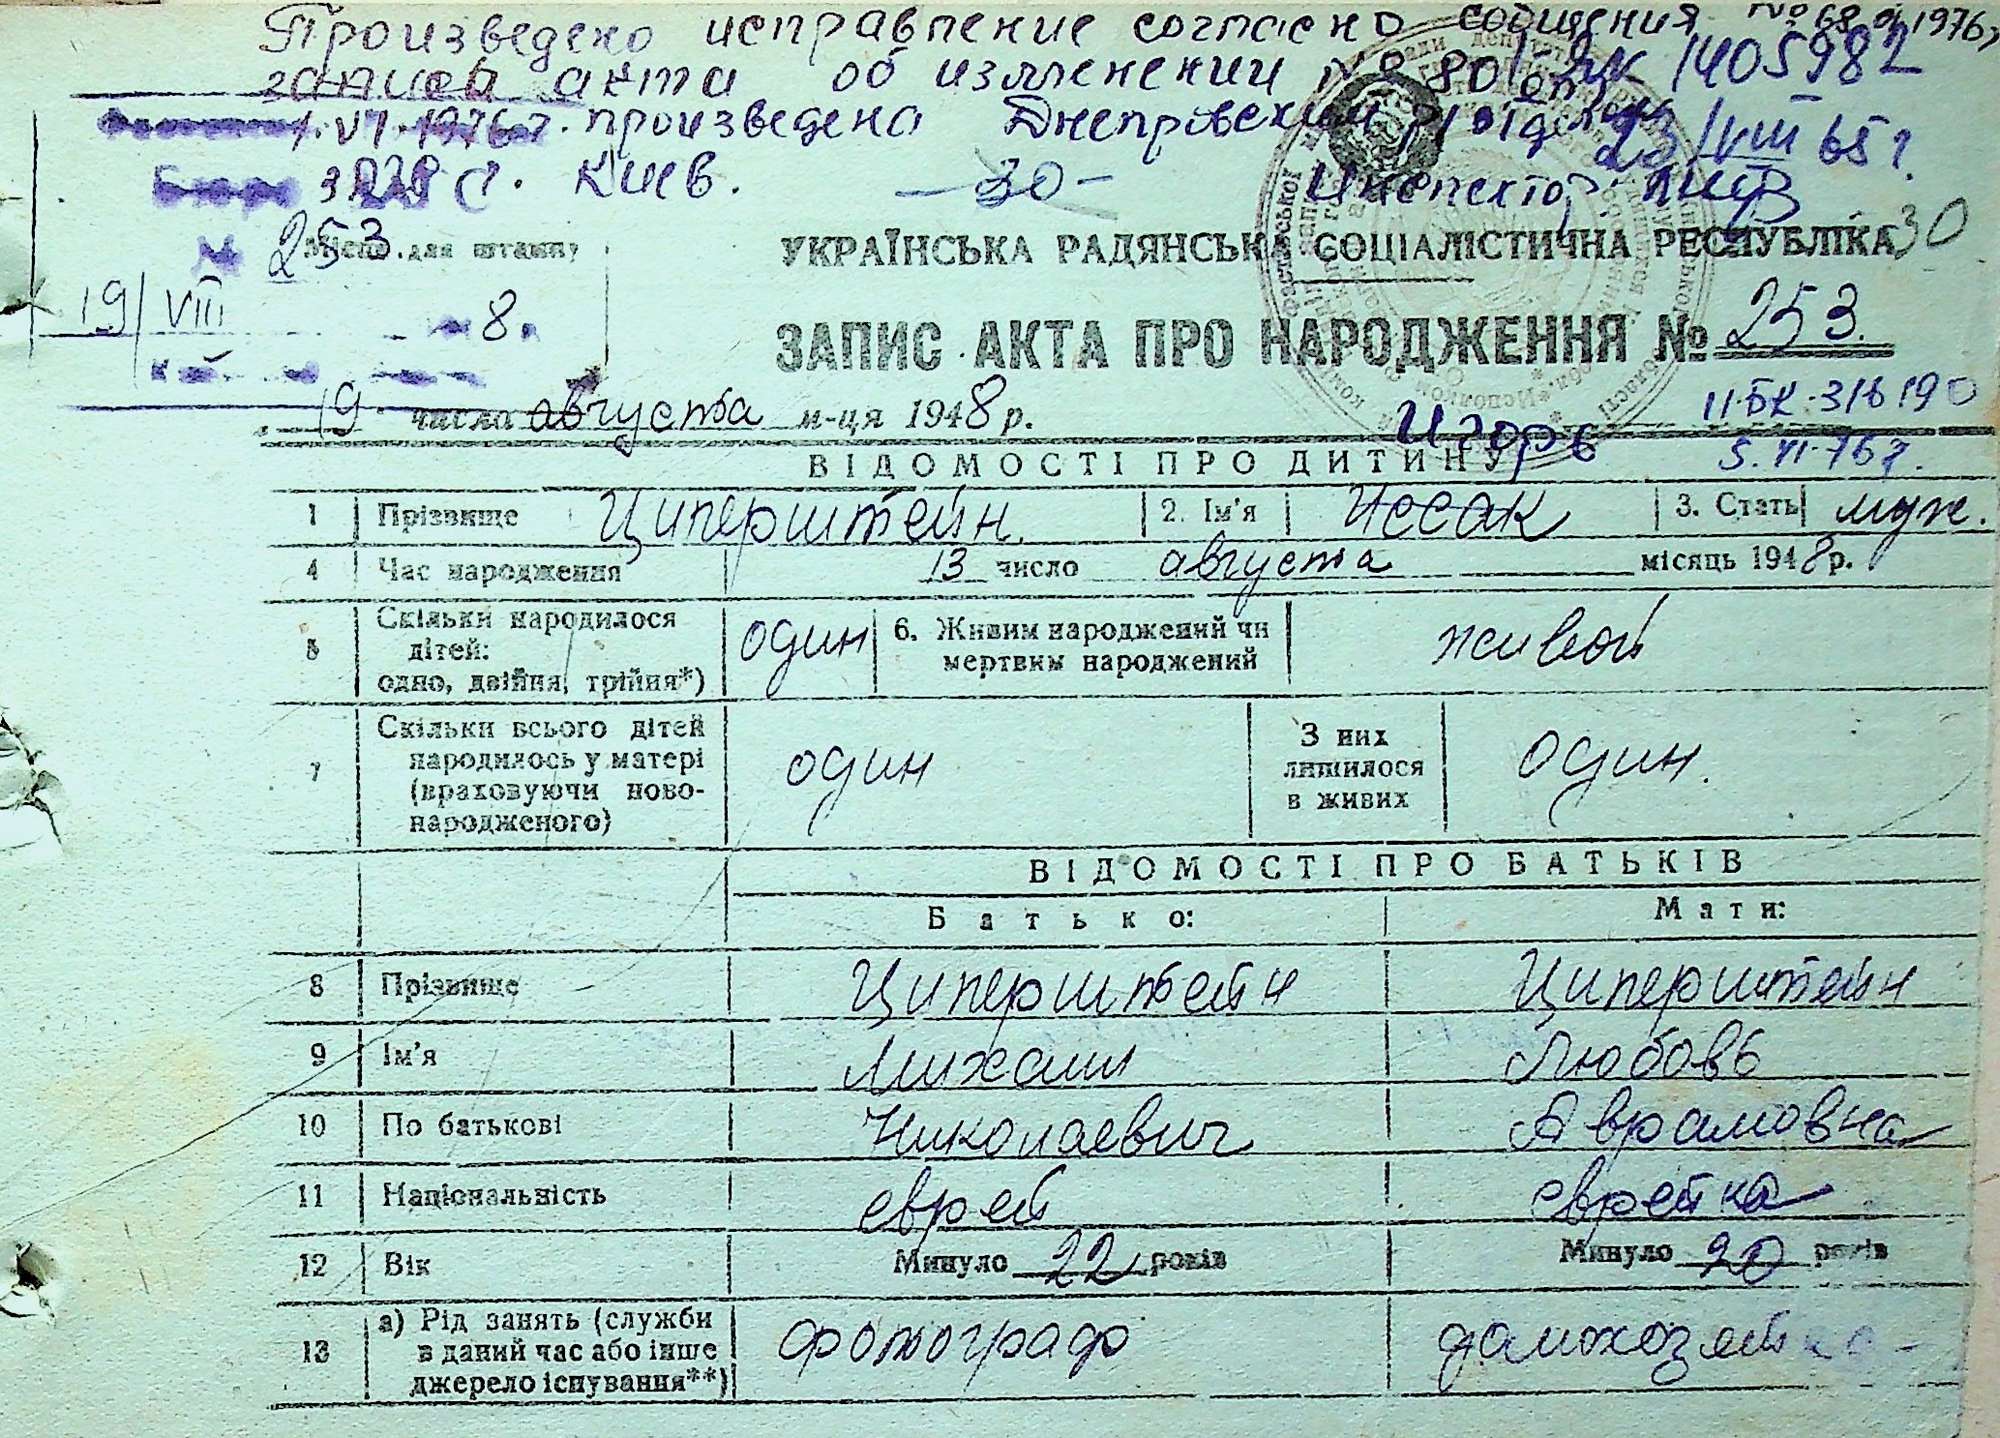 Произведено исправление согласно сообщения № 68 1976г
записи акта об изменении № 80 от ЯК 1405982
1.VI.1976г. произведена Днепровским р/отделом 23/VIII 65 г.
загс г. Киев. — 30 — Инспектор
№ 253 Місце для штампу
УКРАЇНСЬКА РАДЯНСЬКА СОЦІАЛІСТИЧНА РЕСПУБЛІКА 30
19/VIII 8.
ЗАПИС АКТА ПРО НАРОДЖЕННЯ № 253.
19 числа августа м-ця 1948 р.
II-БК-316190
Игорь
5.VI-76г.
ВІДОМОСТІ ПРО ДИТИНУ
1 Прізвище Циперштейн. 2. Ім'я Иссак 3. Стать муж.
4 Час народження 13 число августа місяць 1948 р.
5 Скільки народилося дітей: одно, двійня, трійня*) один 6. Живим народжений чи мертвим народжений живой
7 Скільки всього дітей народилось у матері (враховуючи ново-народженого) один З них лишилося в живих один.
ВІДОМОСТІ ПРО БАТЬКІВ
Батько: Мати:
8 Прізвище Циперштейн Циперштейн
9 Ім'я Михаил Любовь
10 По батькові Николаевич Аврамовна
11 Національність еврей еврейка
12 Вік Минуло 22 років Минуло 20 років
13 а) Рід занять (служби в даний час або інше джерело існування**) фотограф домохозяйка